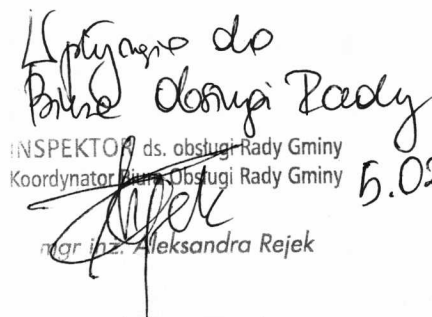 Wpłynęło do
Biura Obsługi Rady
INSPEKTOR ds. obsługi Rady Gminy
Koordynator Biura Obsługi Rady Gminy
5.02
mgr inż. Aleksandra Rejek